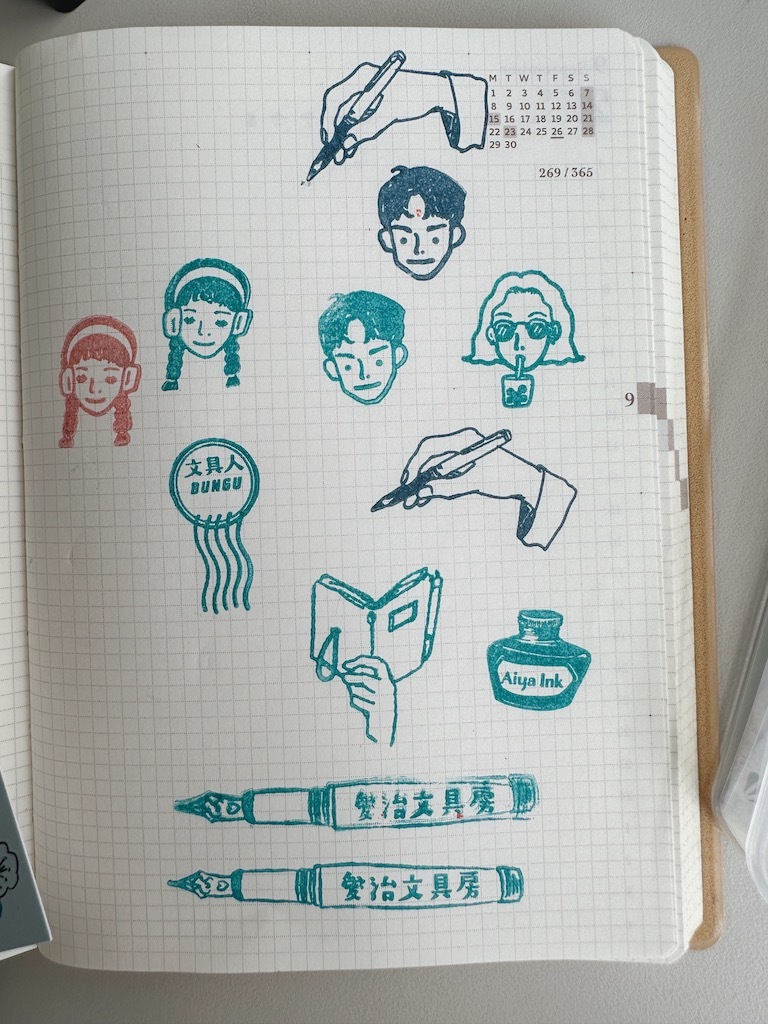 M T W T F S S
1 2 3 4 5 6 7
8 9 10 11 12 13 14
15 16 17 18 19 20 21
22 23 24 25 26 27 28
29 30
269 / 365
9
文具人
BUNGU
Aiya Ink
愛治文具房
愛治文具房